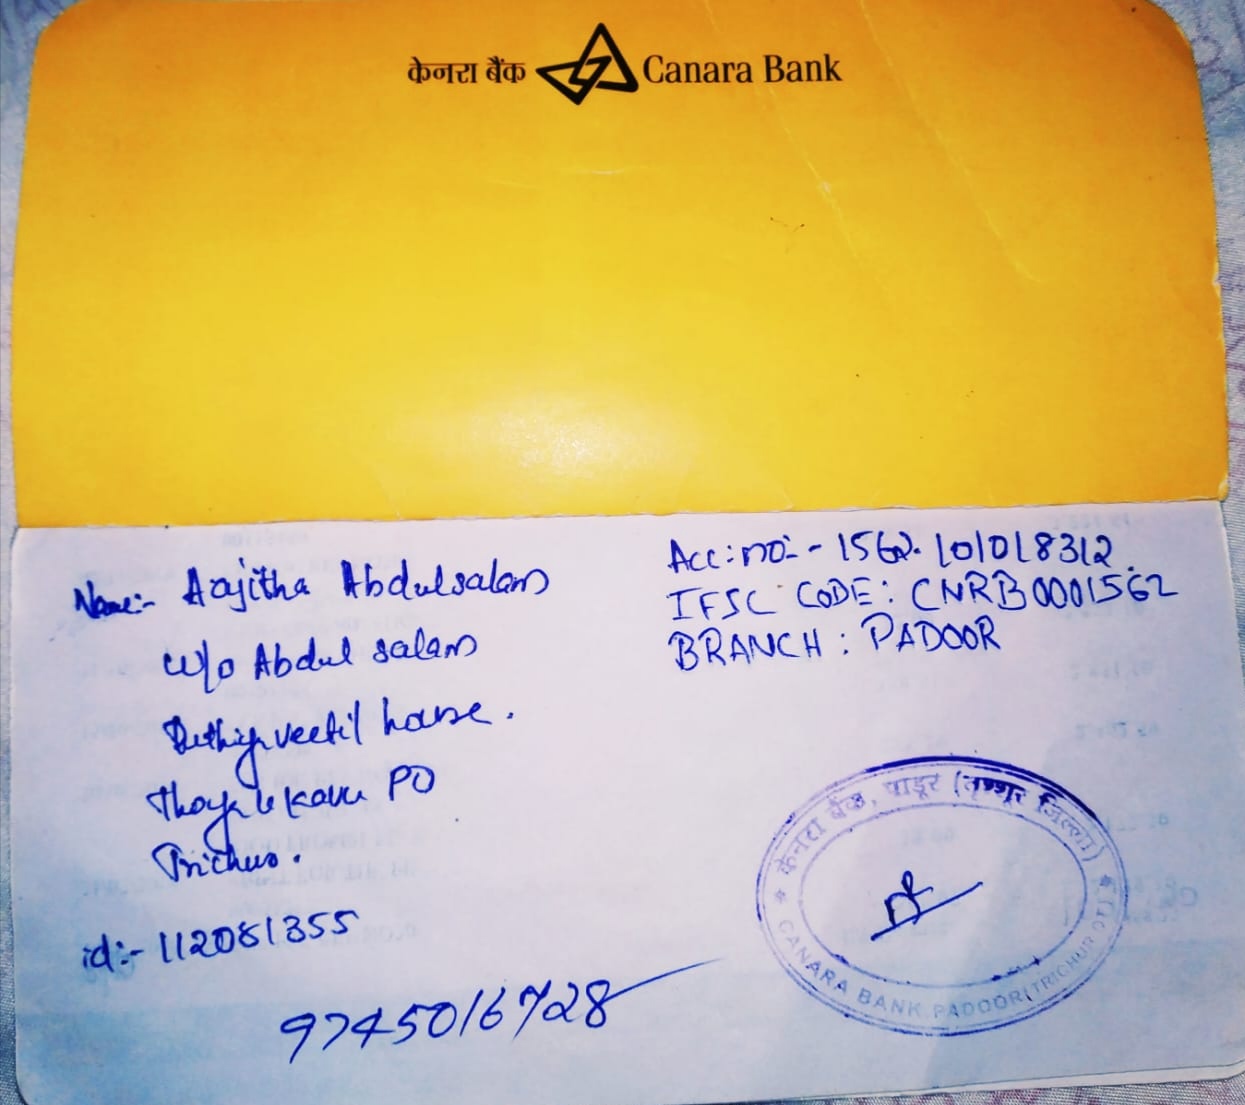 केनरा बैंक Canara Bank
Name:- Aajitha Abdulsalam
W/o Abdul salam
veetil house.
PO
Trichur.
id:- 112081355
9745016728
Acc: no:- 1562101018312
IFSC CODE: CNRB0001562
BRANCH: PADOOR
* केनरा बैंक, पाडूर (तृश्शूर जिल्ला) *
CANARA BANK, PADOOR (TRICHUR DT.)